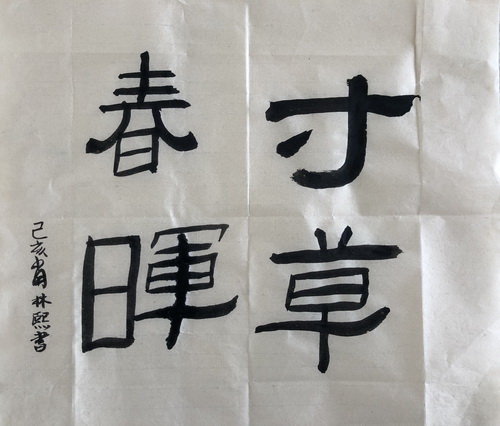 寸草
春暉
己亥肖林熙書